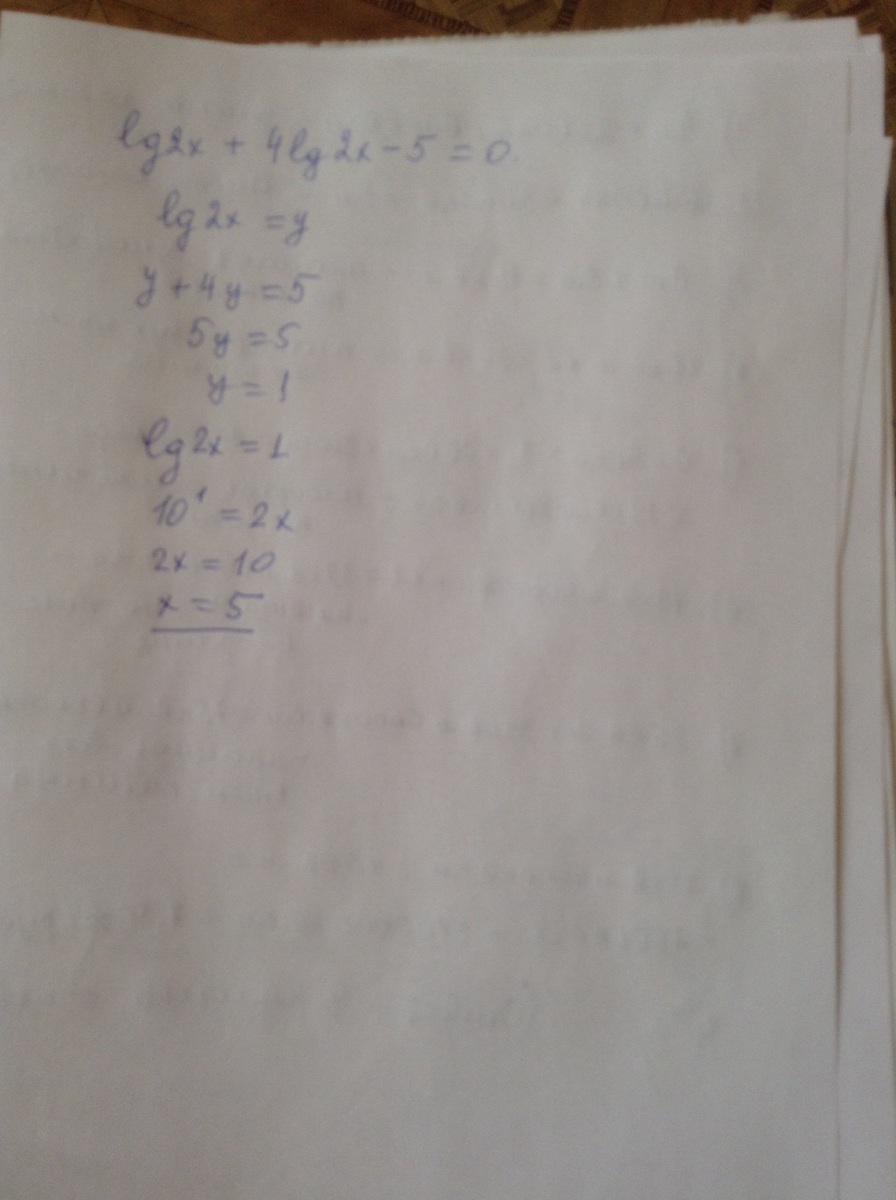 lg2x + 4lg2x - 5 = 0.
lg2x = y
y + 4y = 5
5y = 5
y = 1
lg2x = 1
10¹ = 2x
2x = 10
x = 5